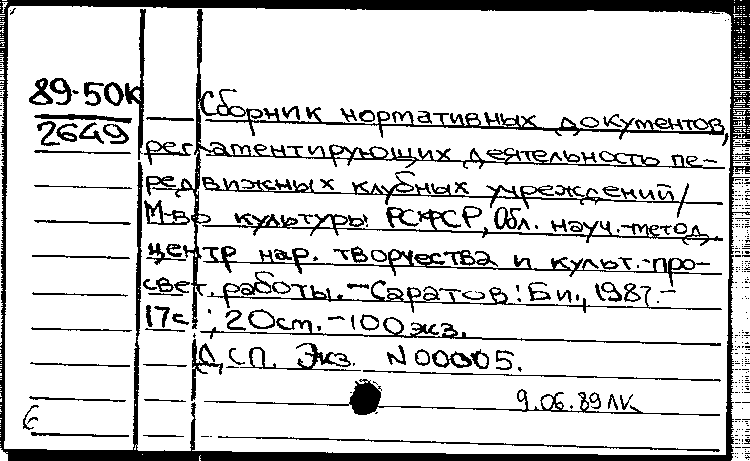 89-50к
2649
Сборник нормативных документов,
регламентирующих деятельность пе-
редвижных клубных учреждений/
М-во культуры РСФСР, Обл. науч.-метод.
центр нар. творчества и культ.-про-
свет. работы. - Саратов: Б.и., 1987. -
17с ; 20см. - 100экз.
Д.С.П. Экз. N00005.
9.06.89 ЛК
6